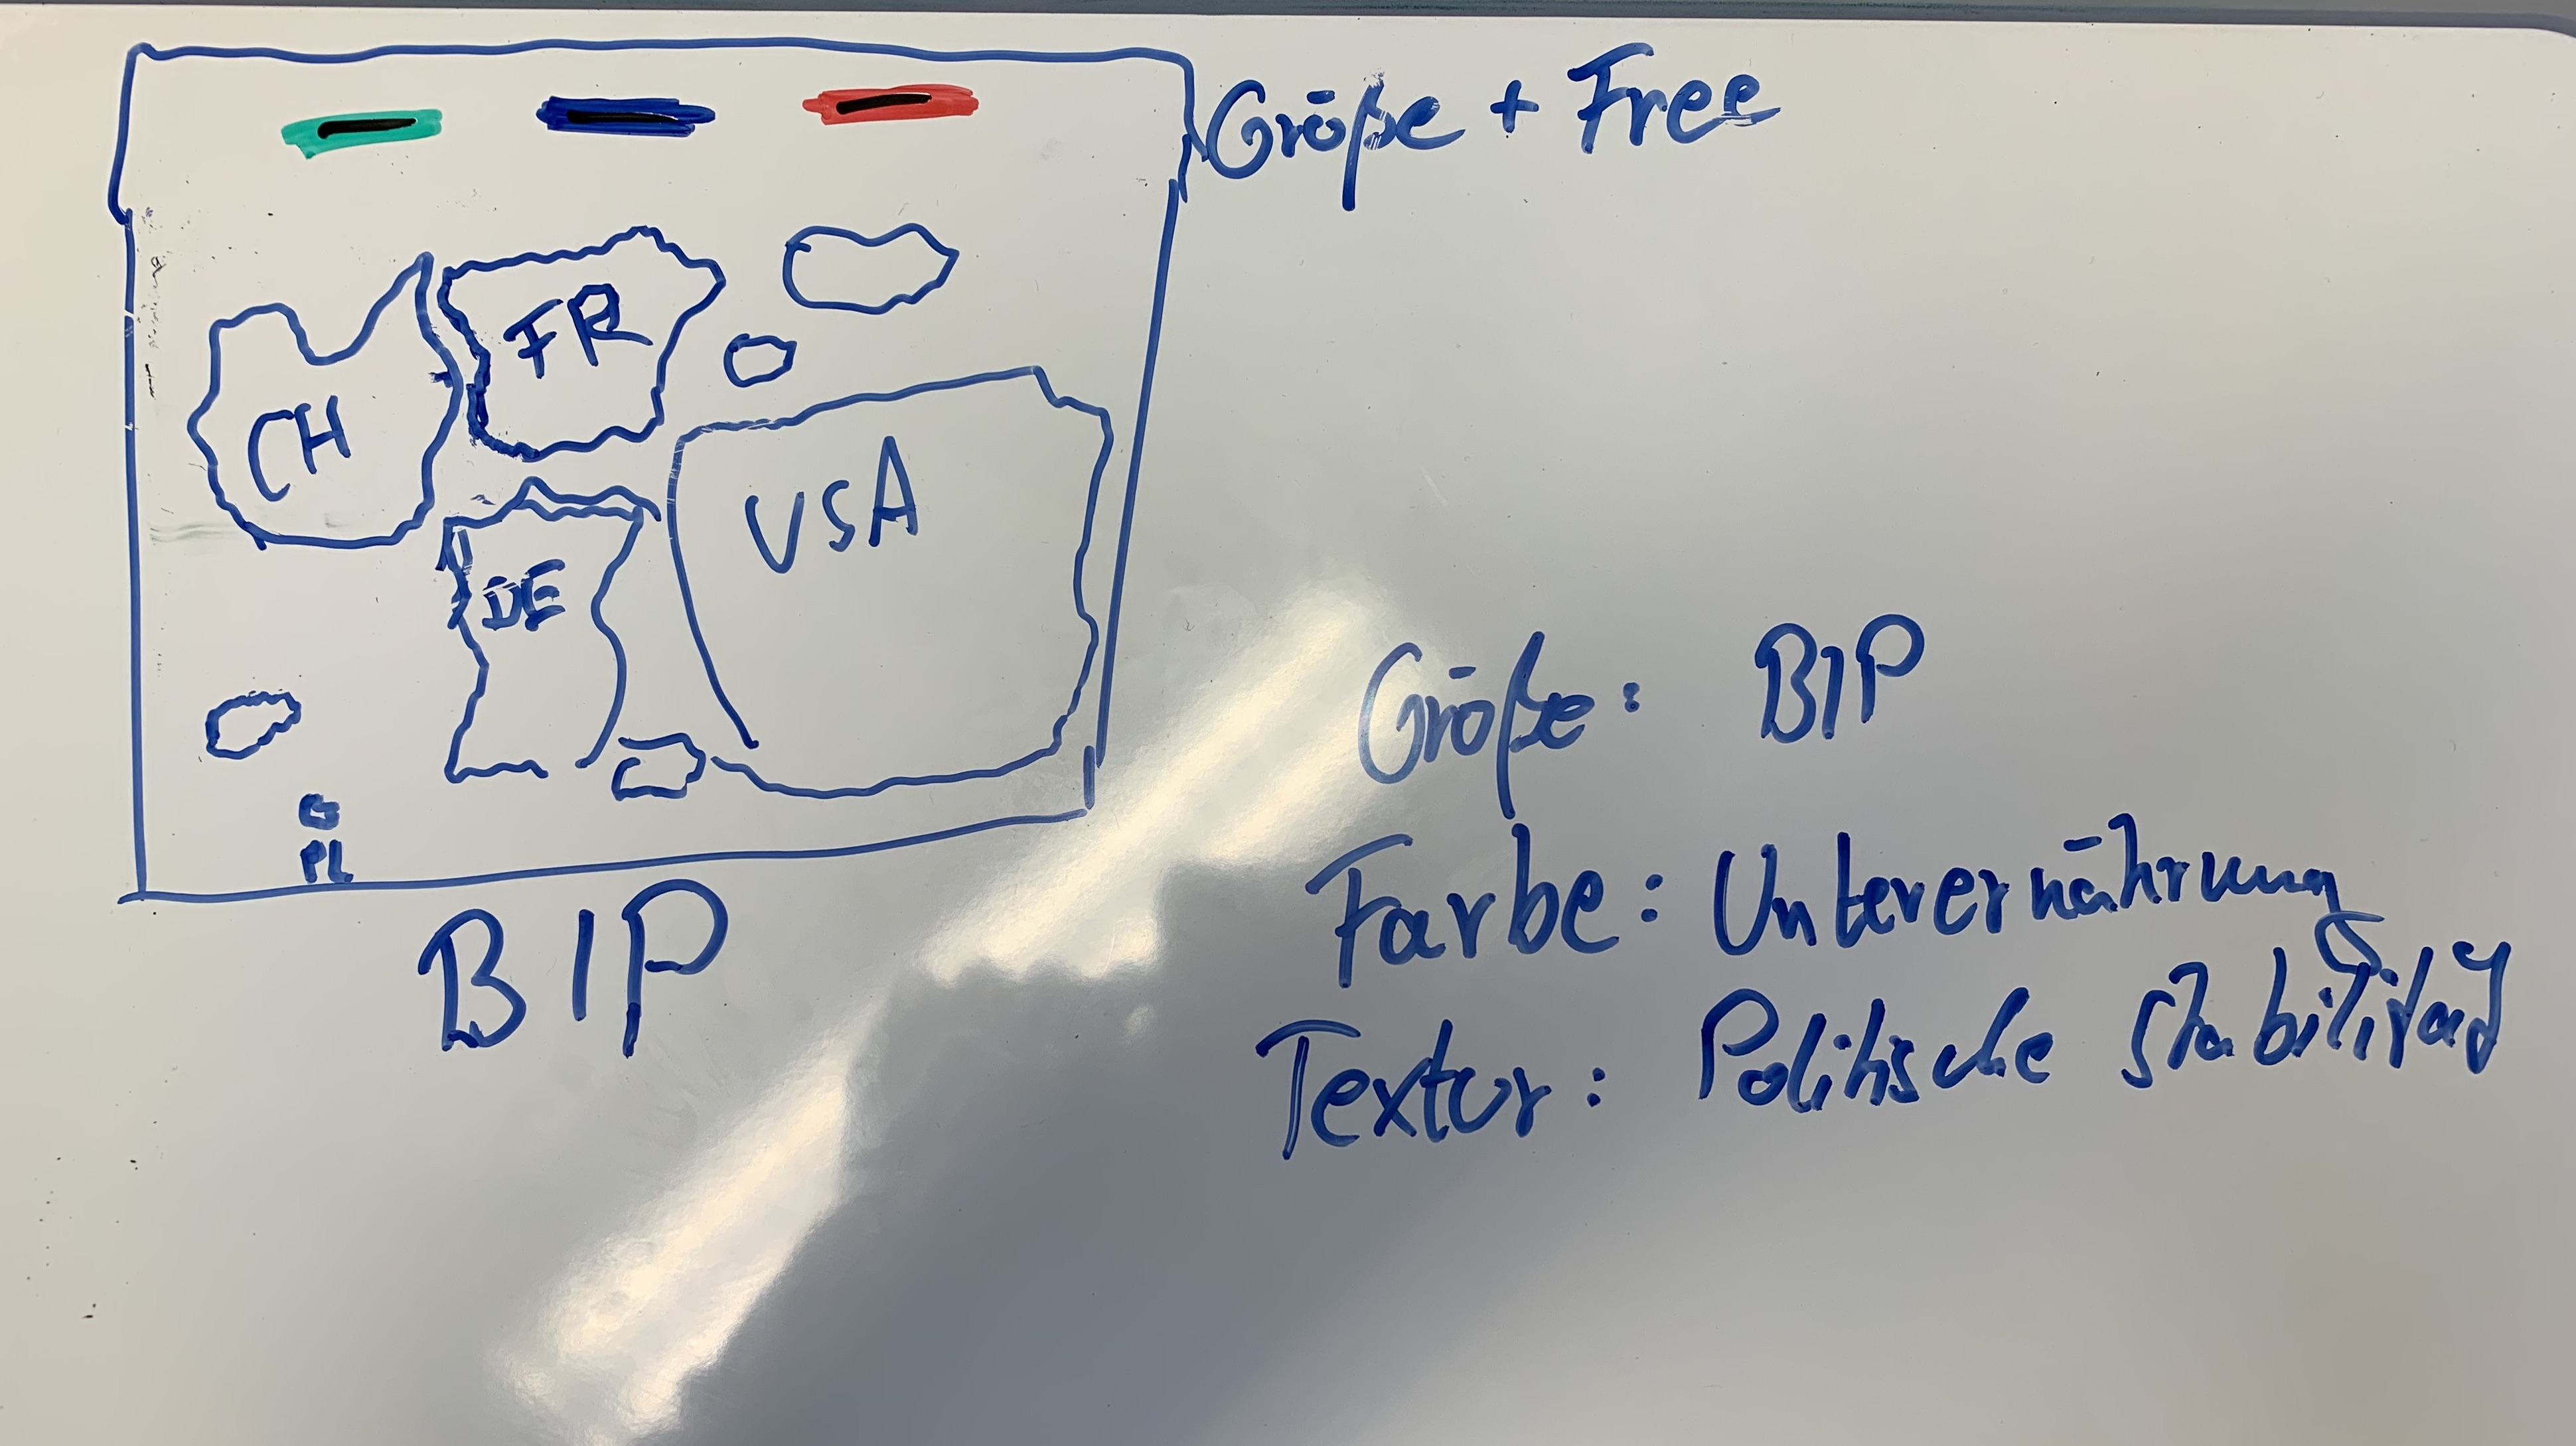 Größe + Free
FR
CH
USA
DE
PL
BIP
Größe: BIP
Farbe: Unterernährung
Textur: Politische Stabilität